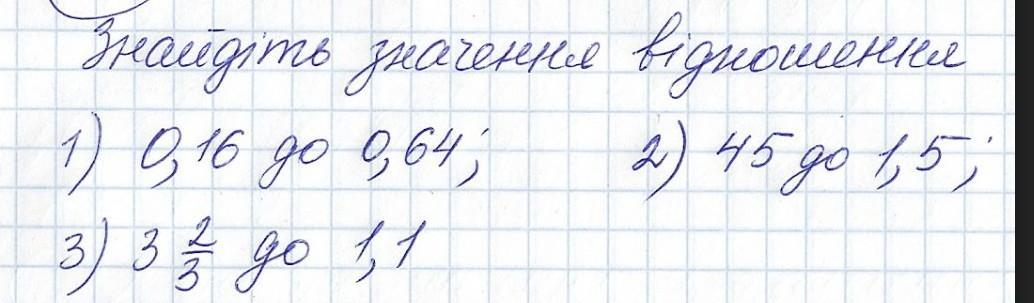 Знайдіть значення відношення
1) 0,16 до 0,64; 2) 45 до 1,5;
3) 3 2/3 до 1,1